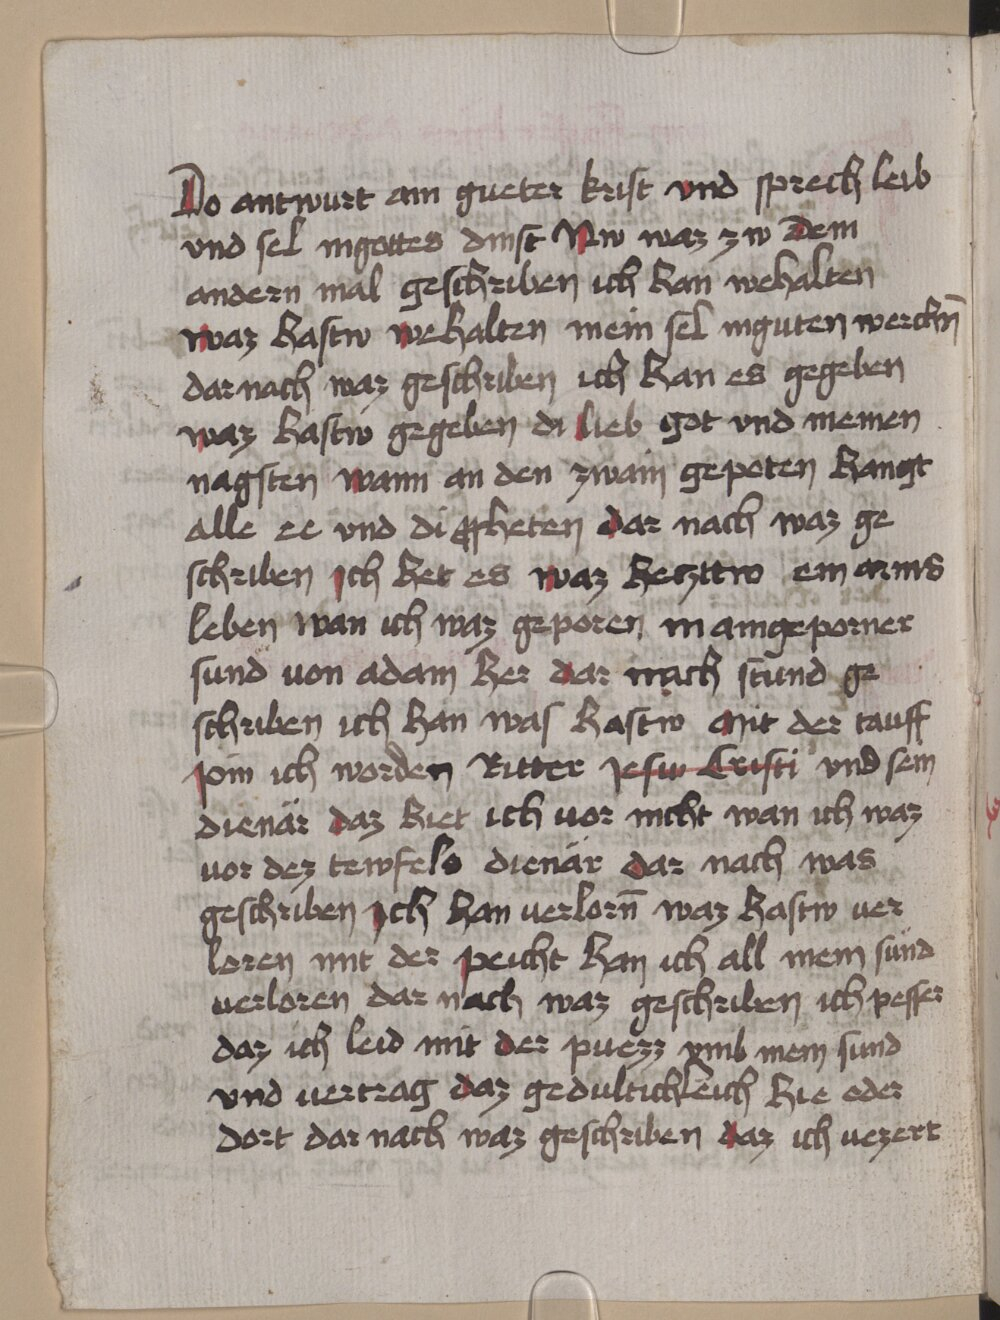 Do antwurt ain gueter krist vnd sprech leib
vnd sel in gottes dinst Nw waz zw dem
andern mal geschriben ich han wehalten
waz hastw wehalten mein sel in guten werckn̄
dar nach waz geschriben ich han es gegeben
waz hastw gegeben di lieb got vnd meinen
nagsten wann an den zwain gepoten hangt
alle ee vnd di ꝓfheten dar nach waz ge
schriben ich het es waz hetzttw ein arms
leben wan ich waz geporen in aingeporner
sund von adam her dar nach stund ge
schriben ich han was hastw Mit der tauff
pin ich worden Ritter Jesw Cristi vnd sein
dienär daz hiet ich vor nicht wan ich waz
vor dez tewfels dienär dar nach was
geschriben ich han verlorn̄ waz hastw ver
loren mit der peicht han ich all mein sünd
verloren dar nach waz geschriben ich pesser
daz ich leid mit der puezz vmb mein sund
vnd vertrag daz gedultichleich hie oder
dort dar nach waz geschriben daz ich vezert